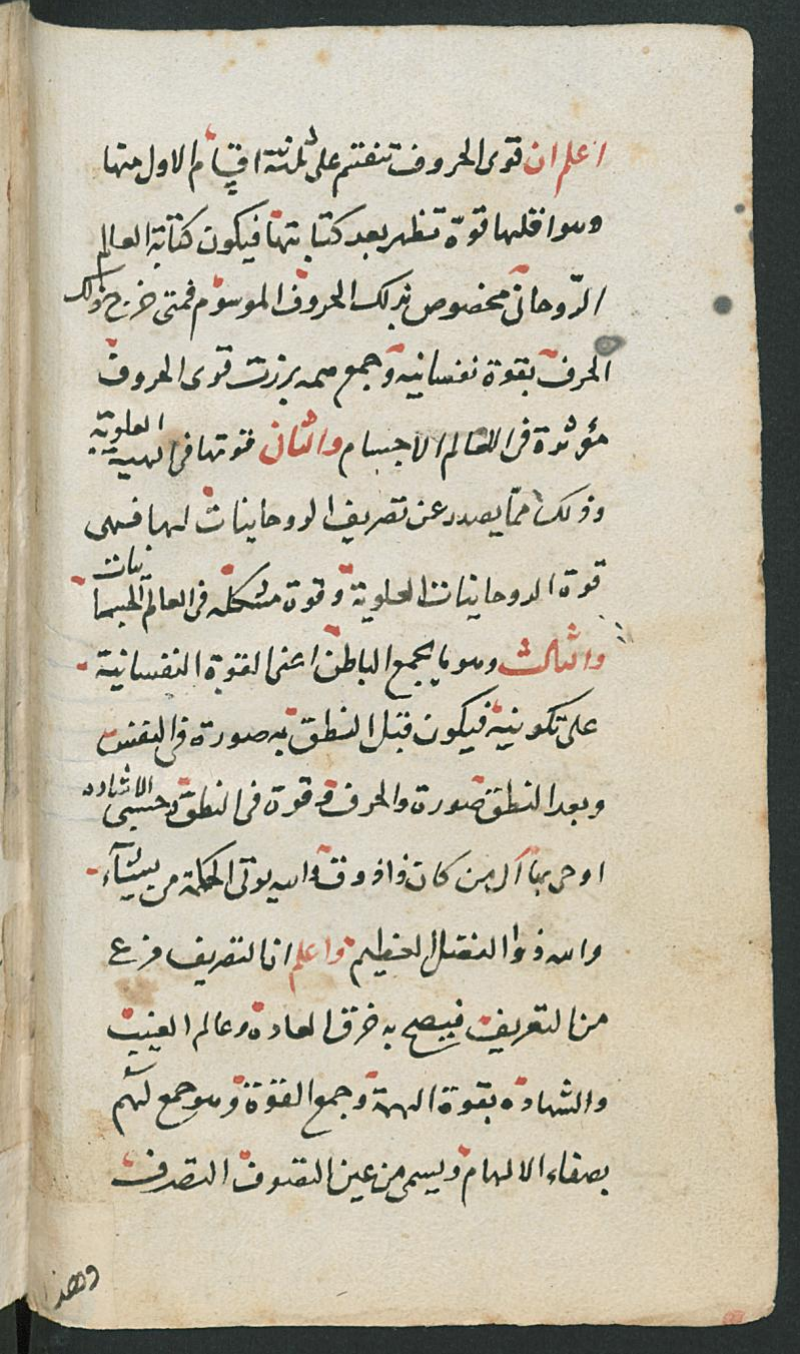 اعلم ان قوى الحروف تنقسم على ثلثة اقسام الاول منها
وهو اقلها قوة تظهر بعد كتابتها فيكون كتابة العالم
الروحانى مخصوص بذلك الحروف الموسوم فمتى خرج ذلك
الحرف بقوة نفسانيه وجمع همه برزت قوى الحروف
مؤثرة فى العالم الاجسام والثانى قوتها فى الهيبة العلوية
وذلك مما يصدر عن تصريف الروحاينات لها فهى
قوة الروحاينات العلوية وقوة مشكله فى العالم الجسمانيات
والثالث وهو ما يجمع الباطن اعنى القوة النفسانية
على تكوينيه فيكون قبل النطق به صورة فى النفس
وبعد النطق صورة والحرف وقوة فى النطق وحسبى الاشاده
اوحى بها الى من كان ذا ذوق والله يوتى الحكمة من يشآء
والله ذو الفضل العظيم واعلم ان التصريف فرع
من التعريف فيصح به خرق العادة وعالم الغيب
والشهادة بقوة الهمة وجمع القوة وهو جمع لهم
بصفاء الالهام ويسمى من عين التصوف التصرف
وهذا